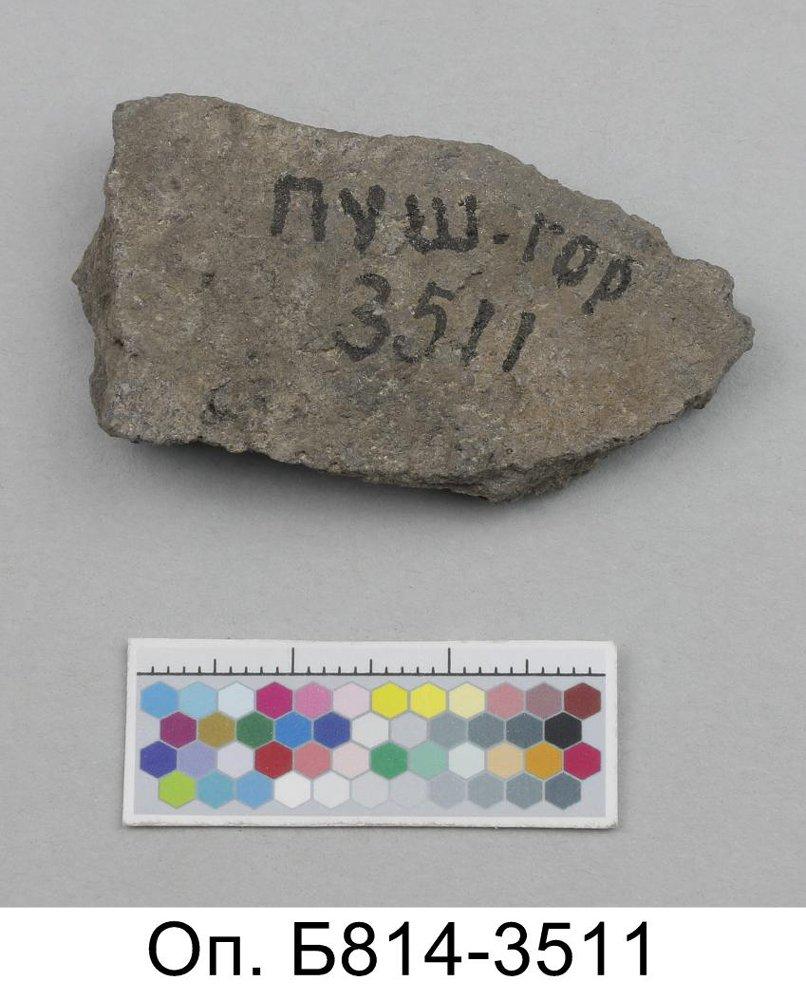 пуш-гор
3511
Оп. Б814-3511